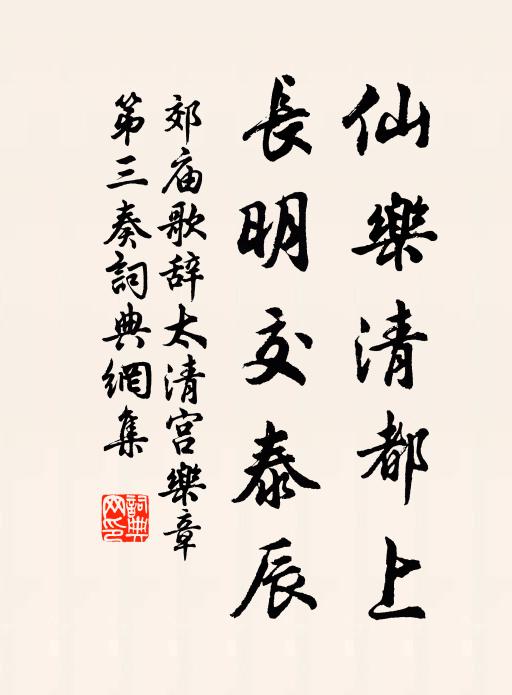 仙樂清都上
長明交泰辰
郊庙歌辞太清宫樂章
第三奏詞典網集
詞典網印